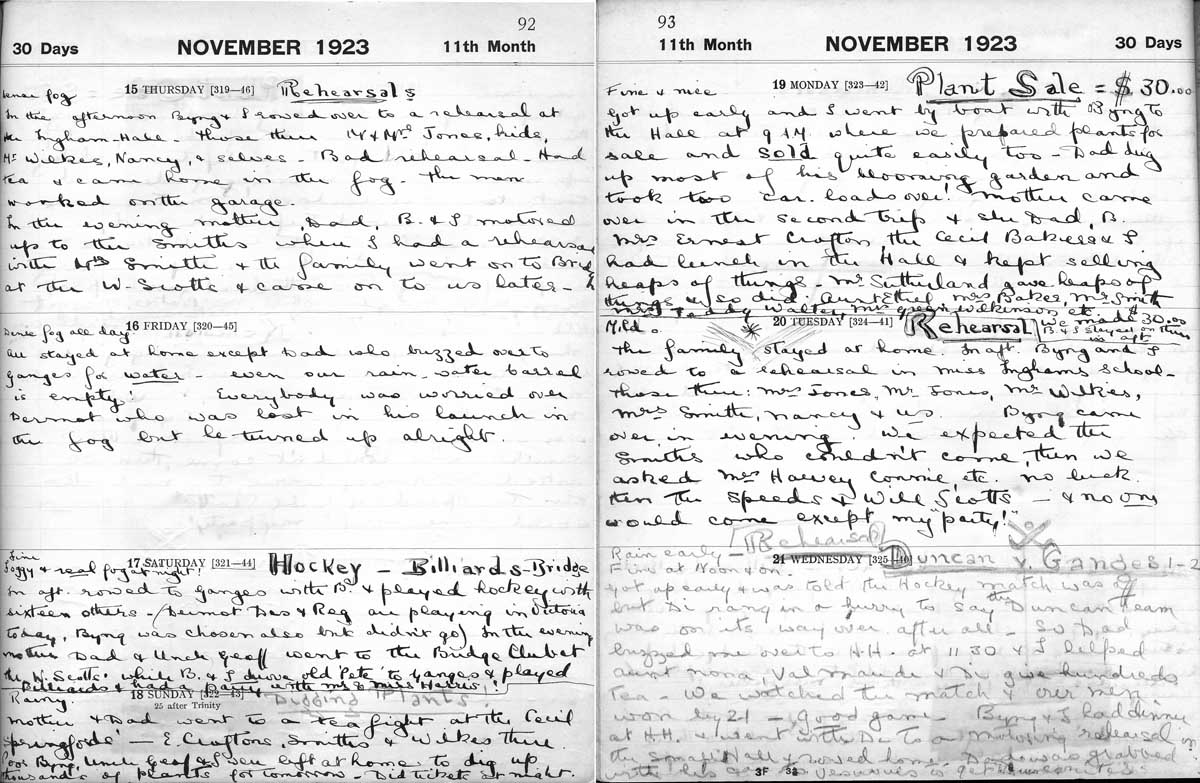 92
30 Days NOVEMBER 1923 11th Month
15 THURSDAY [319—46] Rehearsals
fog
In the afternoon Byng & I rowed over to a rehearsal at
the Ingham Hall. Those there Mr & Mrs Jones, hids,
Mr Wilkes, Nancy, & selves - Bad rehearsal - Had
tea & came home in the fog. The men
worked on the garage.
In the evening mother, Dad, B. & I motored
up to the Smiths when I had a rehearsal
with Mrs Smith & the family went on to Bridge
at the W. Scotts & came on to us later -
16 FRIDAY [320—45]
fog all day
All stayed at home except Dad who buzzed over to
Ganges for water - even our rain-water barrel
is empty! Everybody was worried over
Dermot who was lost in his launch in
the fog but he turned up alright.
17 SATURDAY [321—44] Hockey - Billiards - Bridge
Fine
foggy & real fog at night!
In aft. rowed to Ganges with B. & played hockey with
sixteen others - (Dermot Des & Reg are playing in Victoria
today, Byng was chosen also but didn't go) In the evening
mother Dad & Uncle Geoff went to the Bridge Club at
the W. Scotts' while B. & I drove old 'Pete' to Ganges & played
Billiards & had a party with Mr & Miss Harris!
18 SUNDAY [322—43] Digging Plants!
25 after Trinity
Rainy.
Mother & Dad went to a tea fight at the Cecil
Springfords' — E. Croftons, Smiths & Wilkes there.
Poor Byng, Uncle Geoff & I were left at home to dig up
thousands of plants for tomorrow - Did tickets at night.
93
11th Month NOVEMBER 1923 30 Days
19 MONDAY [323—42] Plant Sale = $30.00
Fine & nice
Got up early and I went by boat with Byng to
the Hall at 9 AM. where we prepared plants for
sale and sold quite easily too - Dad dug
up most of his blooming garden and
took two car. loads over! Mother came
over in the second trip & she Dad, B.
Mrs Ernest Crofton the Cecil Bakers & I
had lunch in the Hall & kept selling
heaps of things - Mr Sutherland gave heaps of
things & so did: Aunt Ethel, Mrs Baker, Mrs Smith
Mrs Teddy Walter, Mrs Green, Wilkinson etc.
We made $30.00
B. & I stayed on there
in aft.
20 TUESDAY [324—41] Rehearsal
Mild.
The family stayed at home. In aft. Byng and I
rowed to a rehearsal in Miss Inghams School -
Those there: Mrs Jones, Mr Jones, Mr Wilkes,
Mrs Smith, Nancy & us. Byng came
over in evening. We expected the
Smiths who couldn't come, then we
asked Mrs Harvey Connie, etc. no luck.
then the Speeds & Will Scotts — & no one
would come except my "party!"
Rehearsal
21 WEDNESDAY [325—40] Duncan v. Ganges 1-2
Rain early -
Fine at Noon & on.
Got up early & was told the Hockey match was off
but Di rang in a hurry to say the Duncan team
was on its way over after all - So Dad
buzzed me over to H.H. at 11 30 & I helped
Aunt Mona, Val, Maude & Di give hundreds
Tea - We watched the match & our men
won by 2-1 - Good game - Byng & I had dinner
at H.H. & went with Di to a rehearsal
the Hall & rowed home.
3F 32